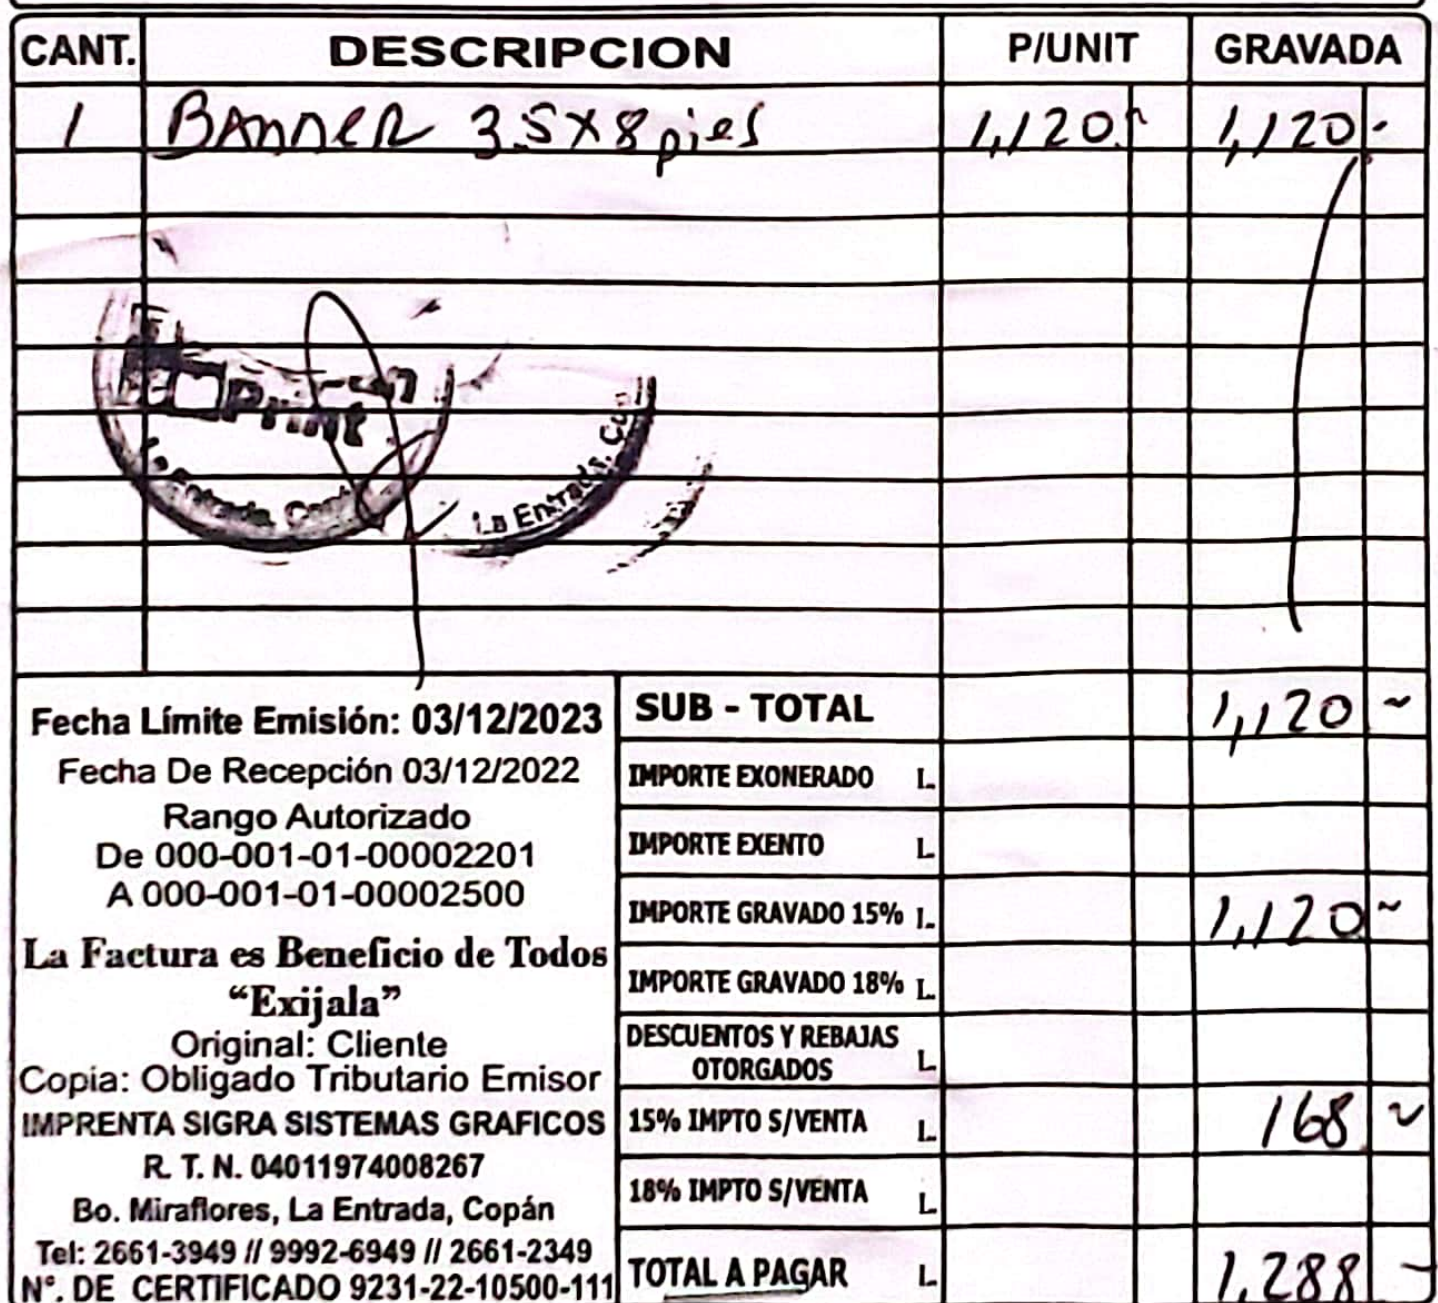 CANT. DESCRIPCION P/UNIT GRAVADA
1 BANNER 3.5X8 pies 1,120.- 1,120.-
Print
La Entrada, Cop
La Entrada, Cop
Fecha Límite Emisión: 03/12/2023
Fecha De Recepción 03/12/2022
Rango Autorizado
De 000-001-01-00002201
A 000-001-01-00002500
La Factura es Beneficio de Todos
“Exijala”
Original: Cliente
Copia: Obligado Tributario Emisor
IMPRENTA SIGRA SISTEMAS GRAFICOS
R. T. N. 04011974008267
Bo. Miraflores, La Entrada, Copán
Tel: 2661-3949 // 9992-6949 // 2661-2349
N°. DE CERTIFICADO 9231-22-10500-111
SUB - TOTAL 1,120 ~
IMPORTE EXONERADO L.
IMPORTE EXENTO L.
IMPORTE GRAVADO 15% L. 1,120 ~
IMPORTE GRAVADO 18% L.
DESCUENTOS Y REBAJAS
OTORGADOS L.
15% IMPTO S/VENTA L. 168 ~
18% IMPTO S/VENTA L.
TOTAL A PAGAR L. 1,288 -